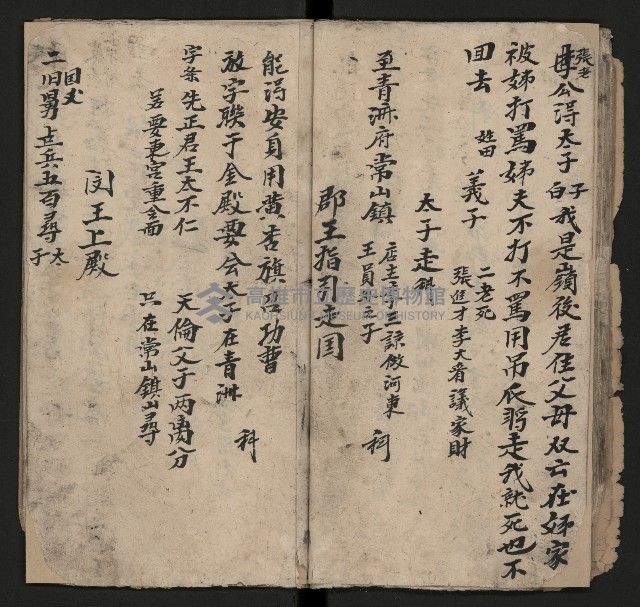 張老
母公得太子 子白 我是嶺後居住父母双亡在姊家
被姊打罵姊夫不打不罵用吊爪將走我就死也不
回去 姓田 義子 二老死 張進才李大看議家財
太子走
至青洲府常山鎮 店主 河東 科
王員 子
郡王指引走国
能得安身用黃杏旗 功曹
放字联于金殿要公太子在青洲 科
字条 先正君王太不仁 天倫父子两离分
若要東宮重会面 只在常山鎮山尋
闵王上殿
国丈
二旧舅 兵五百尋太子
高雄市立歷史博物館
KAOHSIUNG MUSEUM OF HISTORY